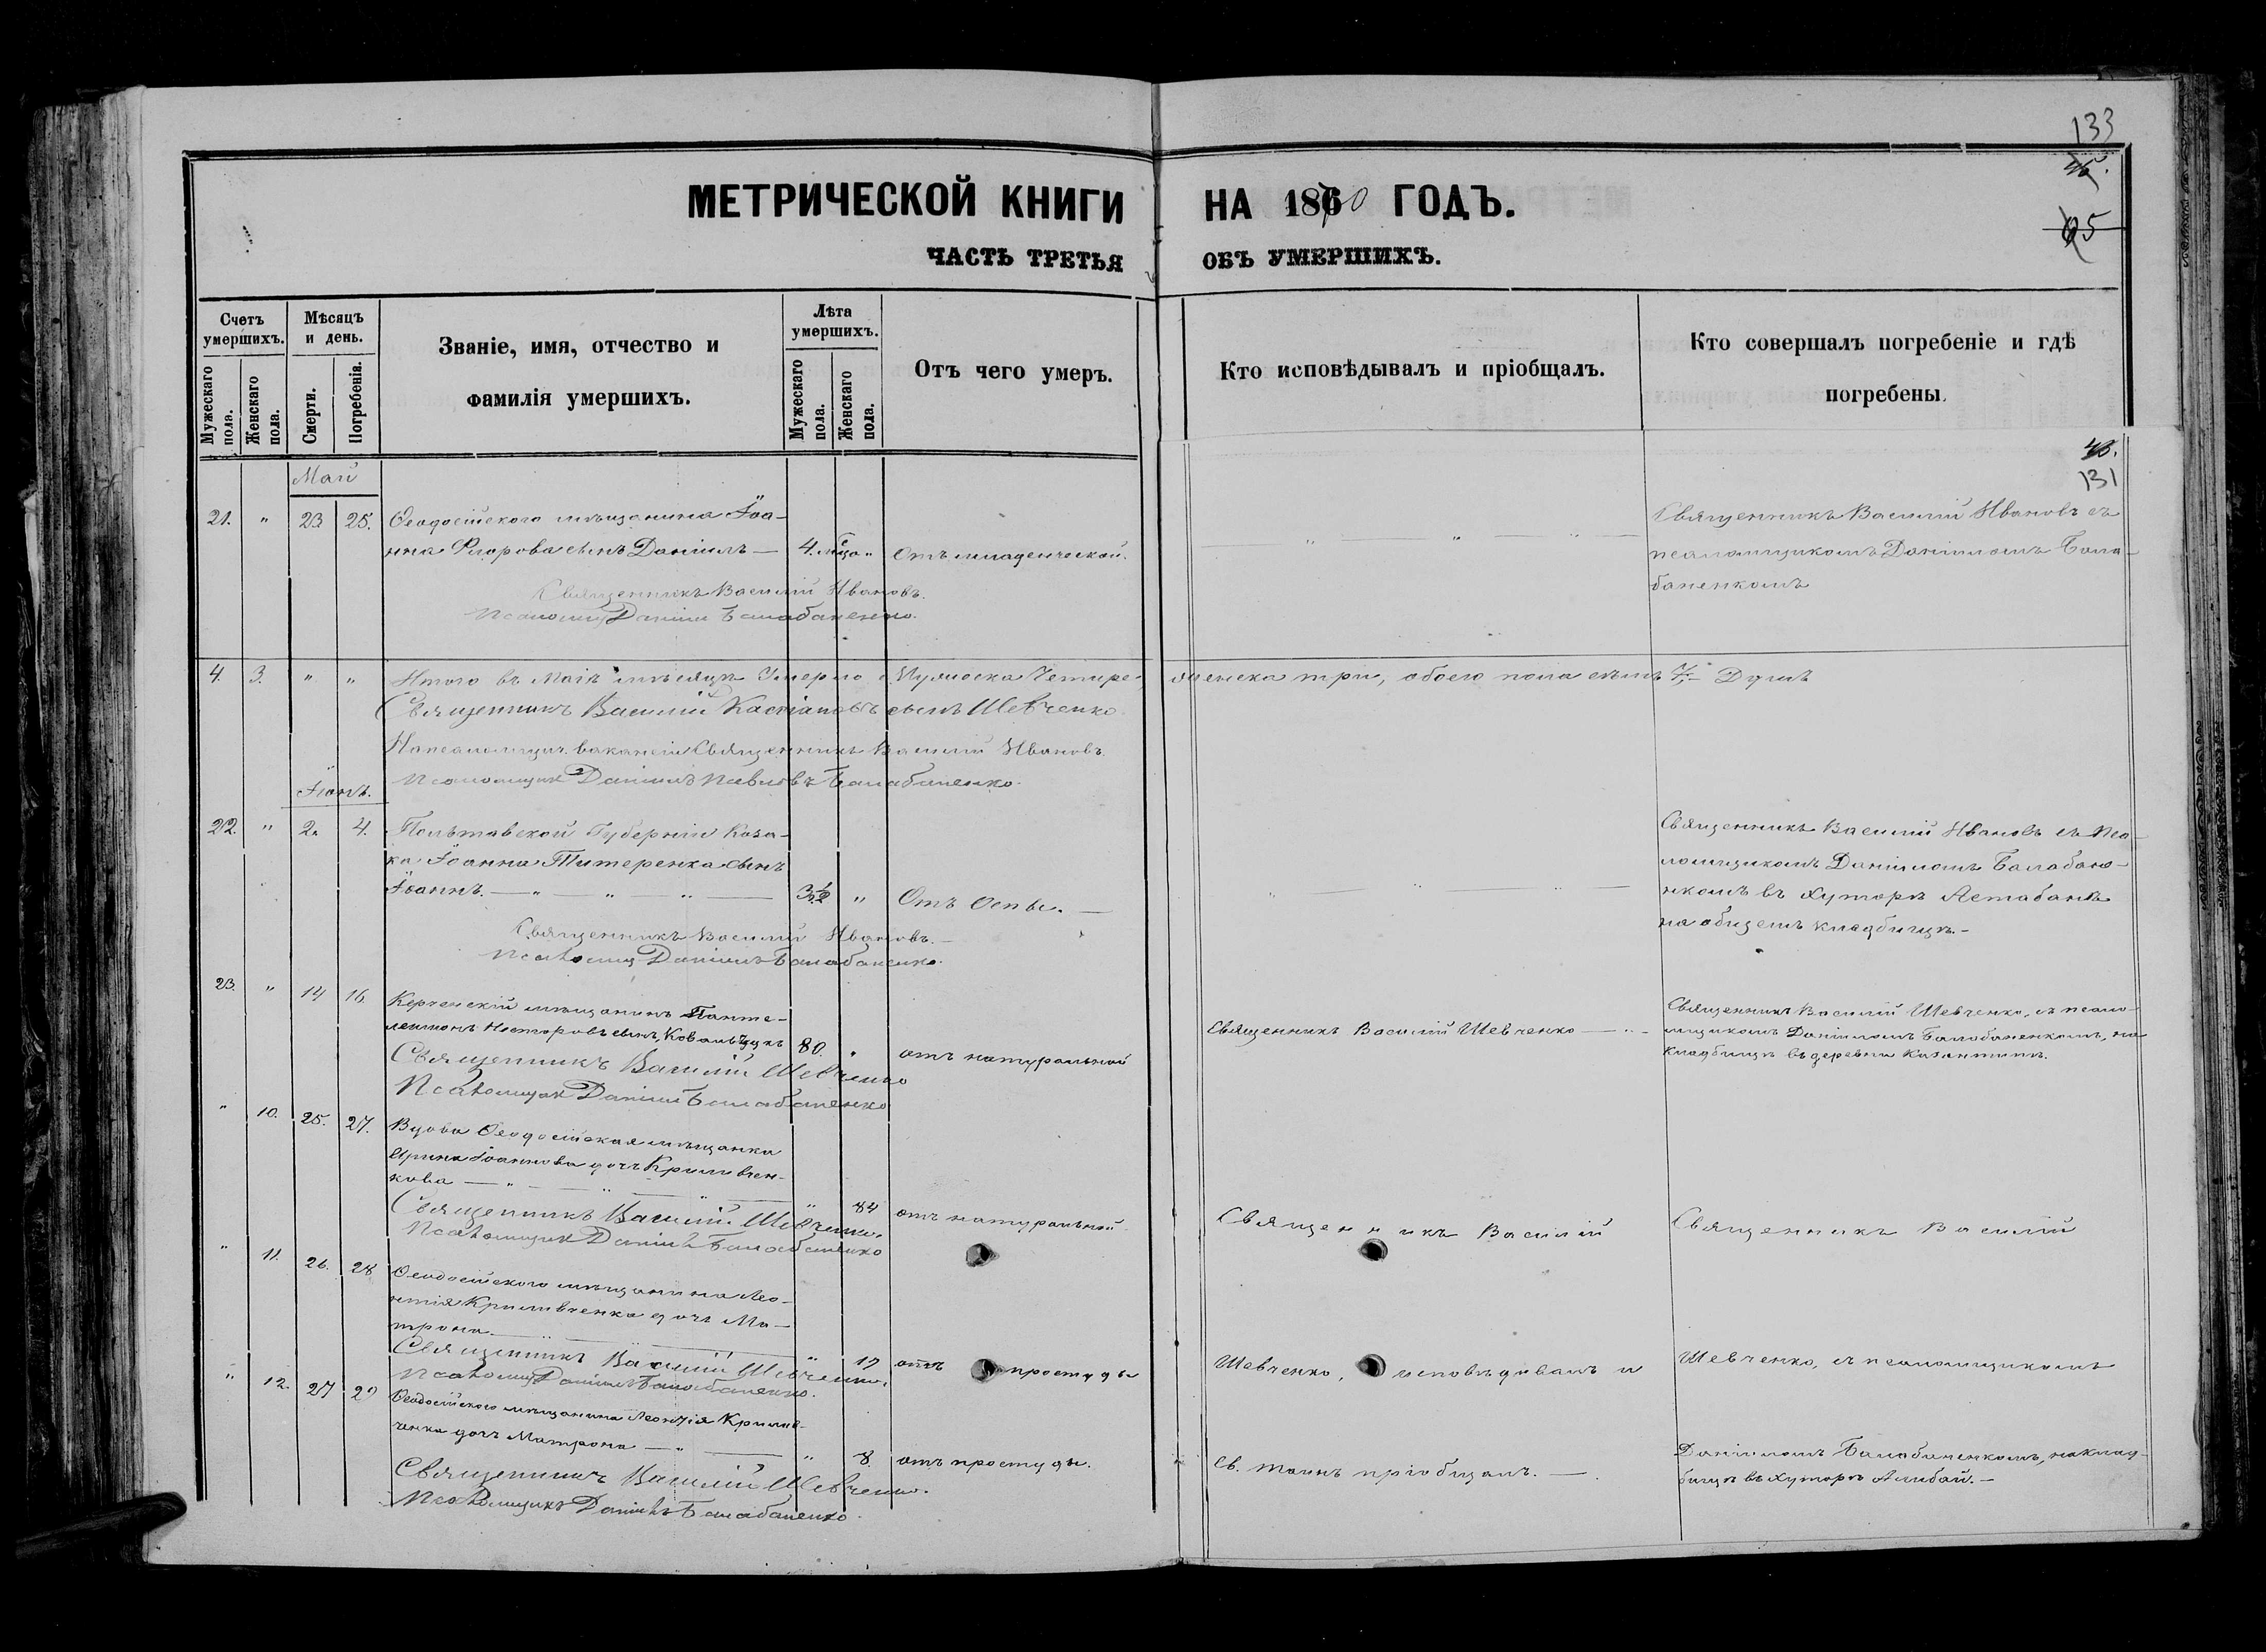 133
95
МЕТРИЧЕСКОЙ КНИГИ НА 1870 ГОДЪ.
ЧАСТЬ ТРЕТЬЯ ОБЪ УМЕРШИХЪ.
Счетъ умершихъ.
Мужескаго пола.
Женскаго пола.
Мѣсяцъ и день.
Смерти.
Погребенія.
Званіе, имя, отчество и
фамилія умершихъ.
Лѣта умершихъ.
Мужескаго пола.
Женскаго пола.
Отъ чего умеръ.
Кто исповѣдывалъ и пріобщалъ.
Кто совершалъ погребеніе и гдѣ
погребены.
131
Май
21. " 23 25. Ѳеодосійского мѣщанина Іоа-
нна сынъ Даніилъ — 4. " Отъ младенческой.
Священникъ Василій Ивановъ съ
псаломщикомъ Даніиломъ Бала-
баненкомъ
Священникъ Василій Ивановъ.
Псаломщ Даніилъ Балабаненко.
4. 3. " " Итого въ Маіѣ мѣсяцѣ Умерло Мужеска Четыре, женска три, обоего пола семь 7, Душъ
Священникъ Василій Касіановъ сынъ Шевченко
На псаломщич. вакансіи Священникъ Василій Ивановъ.
Псаломщик Даніилъ Павловъ Балабаненко.
Іюнь.
22. " 2. 4. Полтавской Губерніи Коза-
ка Іоанна Титеренка сынъ
Іоаннъ. — " — " — " — 3½ " Отъ Оспы. —
Священникъ Василій Ивановъ съ Пса-
ломщикомъ Даніиломъ Балабане-
нкомъ въ Хуторѣ Астабань
на общемъ кладбищѣ. —
Священникъ Василій Ивановъ. —
Псаломщ Даніилъ Балабаненко.
23. " 14 16. Керченскій мѣщанинъ Панте-
леимонъ Несторовъ сынъ, 80. " отъ натуральной
Священникъ Василій Шевченко
Священникъ Василій Шевченко, съ псало-
мщикомъ Даніиломъ Балабаненкомъ, на
кладбищѣ въ деревни Казантипъ.
Священникъ Василій Шевченко
Псаломщик Даніилъ Балабаненко
" 10. 25. 27. Вдова Ѳеодосійская мѣщанка
Ирина Іоаннова дочь Криливчен-
кова — " 84 отъ натуральной
Священникъ Василій Шевченко.
Псаломщик Даніилъ Балабаненко
Священникъ Василій
Священникъ Василій
" 11. 26. 28 Ѳеодосійского мѣщанина Лео-
нтія Криливченка дочь Ма-
трона — " 17 отъ простуды
Священникъ Василій Шевченко.
Псаломщ Даніилъ Балабаненко.
Шевченко, исповѣдивалъ и
Шевченко, съ псаломщикомъ
" 12. 27 29 Ѳеодосійского мѣщанина Леонтія Крилив-
ченка дочь Матрона — " — " 8. отъ простуды.
Св. таинъ пріобщалъ. —
Даніиломъ Балабаненкомъ, на клад-
бищѣ въ хуторѣ Алибай. —
Священникъ Василій Шевченко.
Псаломщикъ Даніилъ Балабаненко.